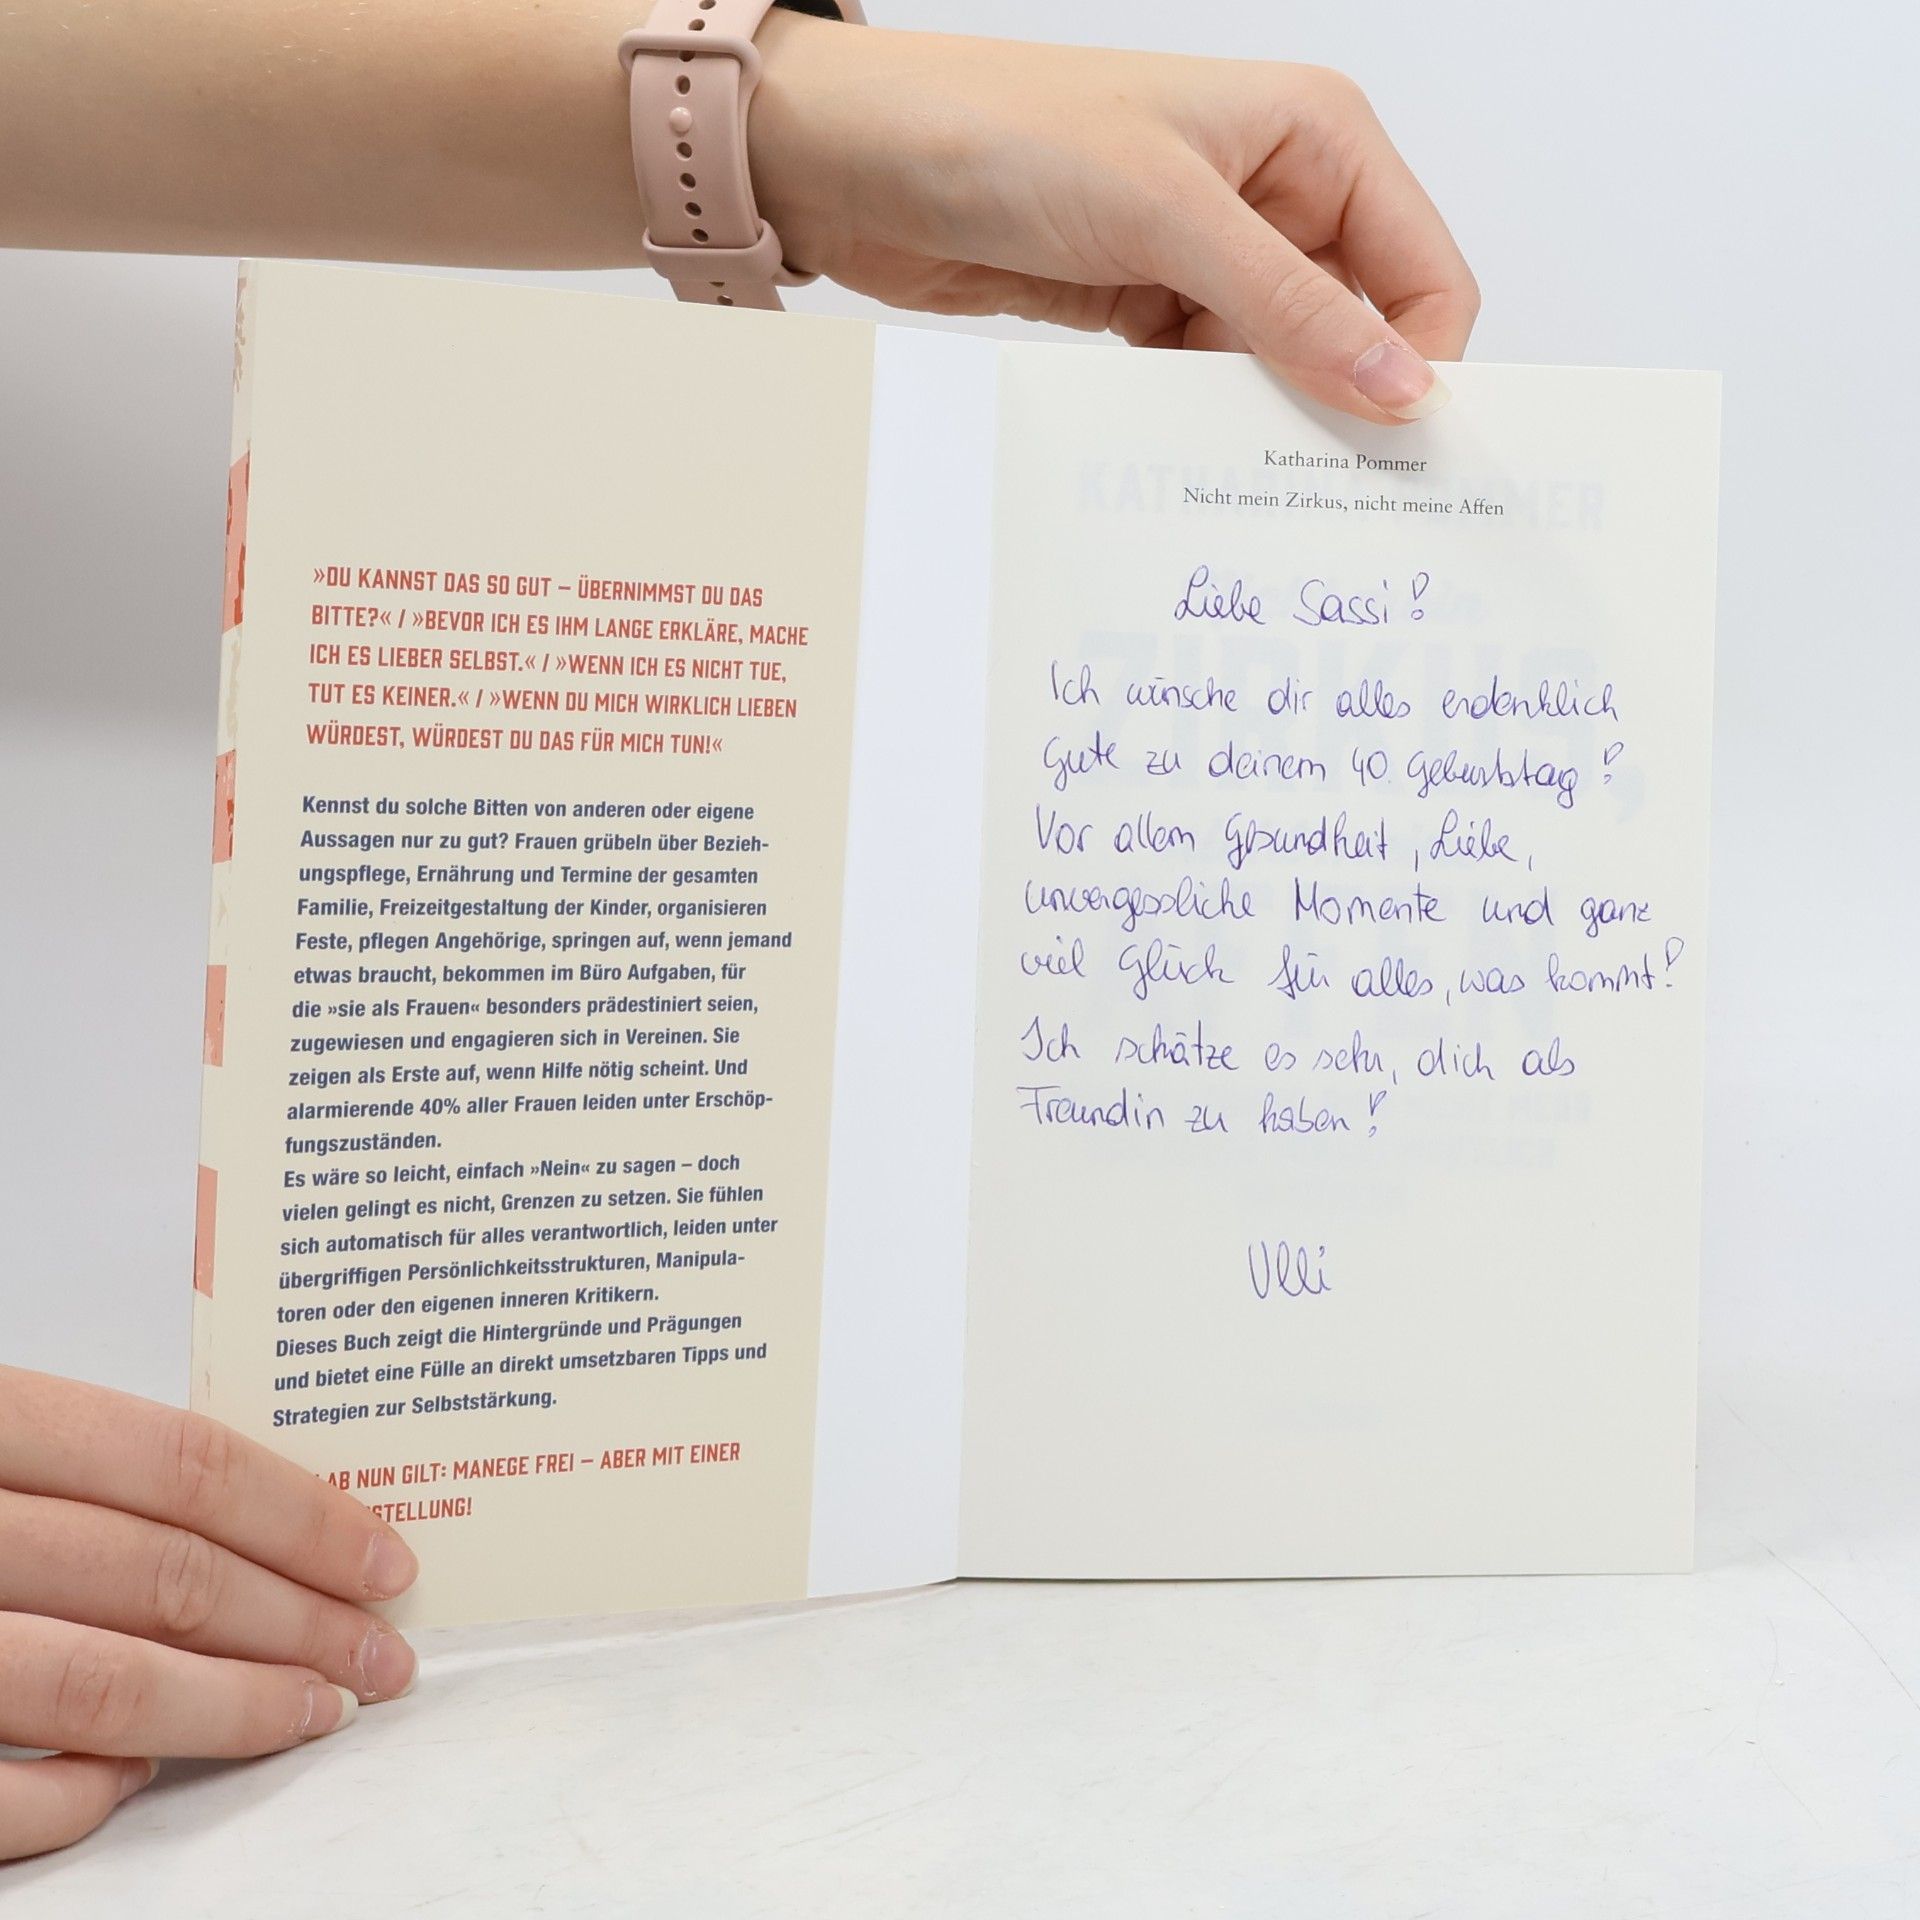 »DU KANNST DAS SO GUT – ÜBERNIMMST DU DAS
BITTE?« / »BEVOR ICH ES IHM LANGE ERKLÄRE, MACHE
ICH ES LIEBER SELBST.« / »WENN ICH ES NICHT TUE,
TUT ES KEINER.« / »WENN DU MICH WIRKLICH LIEBEN
WÜRDEST, WÜRDEST DU DAS FÜR MICH TUN!«
Kennst du solche Bitten von anderen oder eigene
Aussagen nur zu gut? Frauen grübeln über Bezieh-
ungspflege, Ernährung und Termine der gesamten
Familie, Freizeitgestaltung der Kinder, organisieren
Feste, pflegen Angehörige, springen auf, wenn jemand
etwas braucht, bekommen im Büro Aufgaben, für
die »sie als Frauen« besonders prädestiniert seien,
zugewiesen und engagieren sich in Vereinen. Sie
zeigen als Erste auf, wenn Hilfe nötig scheint. Und
alarmierende 40% aller Frauen leiden unter Erschöp-
fungszuständen.
Es wäre so leicht, einfach »Nein« zu sagen – doch
vielen gelingt es nicht, Grenzen zu setzen. Sie fühlen
sich automatisch für alles verantwortlich, leiden unter
übergriffigen Persönlichkeitsstrukturen, Manipula-
toren oder den eigenen inneren Kritikern.
Dieses Buch zeigt die Hintergründe und Prägungen
und bietet eine Fülle an direkt umsetzbaren Tipps und
Strategien zur Selbststärkung.
AB NUN GILT: MANEGE FREI – ABER MIT EINER
STELLUNG!
Katharina Pommer
Nicht mein Zirkus, nicht meine Affen
Liebe Sassi!
Ich wünsche dir alles erdenklich
Gute zu deinem 40. Geburtstag!
Vor allem Gesundheit, Liebe,
unvergessliche Momente und ganz
viel Glück für alles, was kommt!
Ich schätze es sehr, dich als
Freundin zu haben!
Ulli